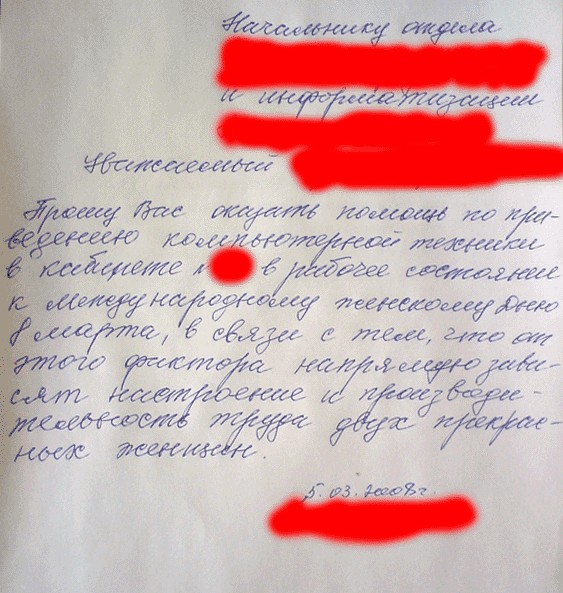 Начальнику отдела
и информатизации
Уважаемый
Прошу Вас оказать помощь по при-
ведению компьютерной техники
в кабинете в рабочее состояние
к международному женскому Дню
8 марта, в связи с тем, что от
этого фактора напрямую зави-
сят настроение и производи-
тельность труда двух прекрас-
ных женщин.
5.03.2008г.